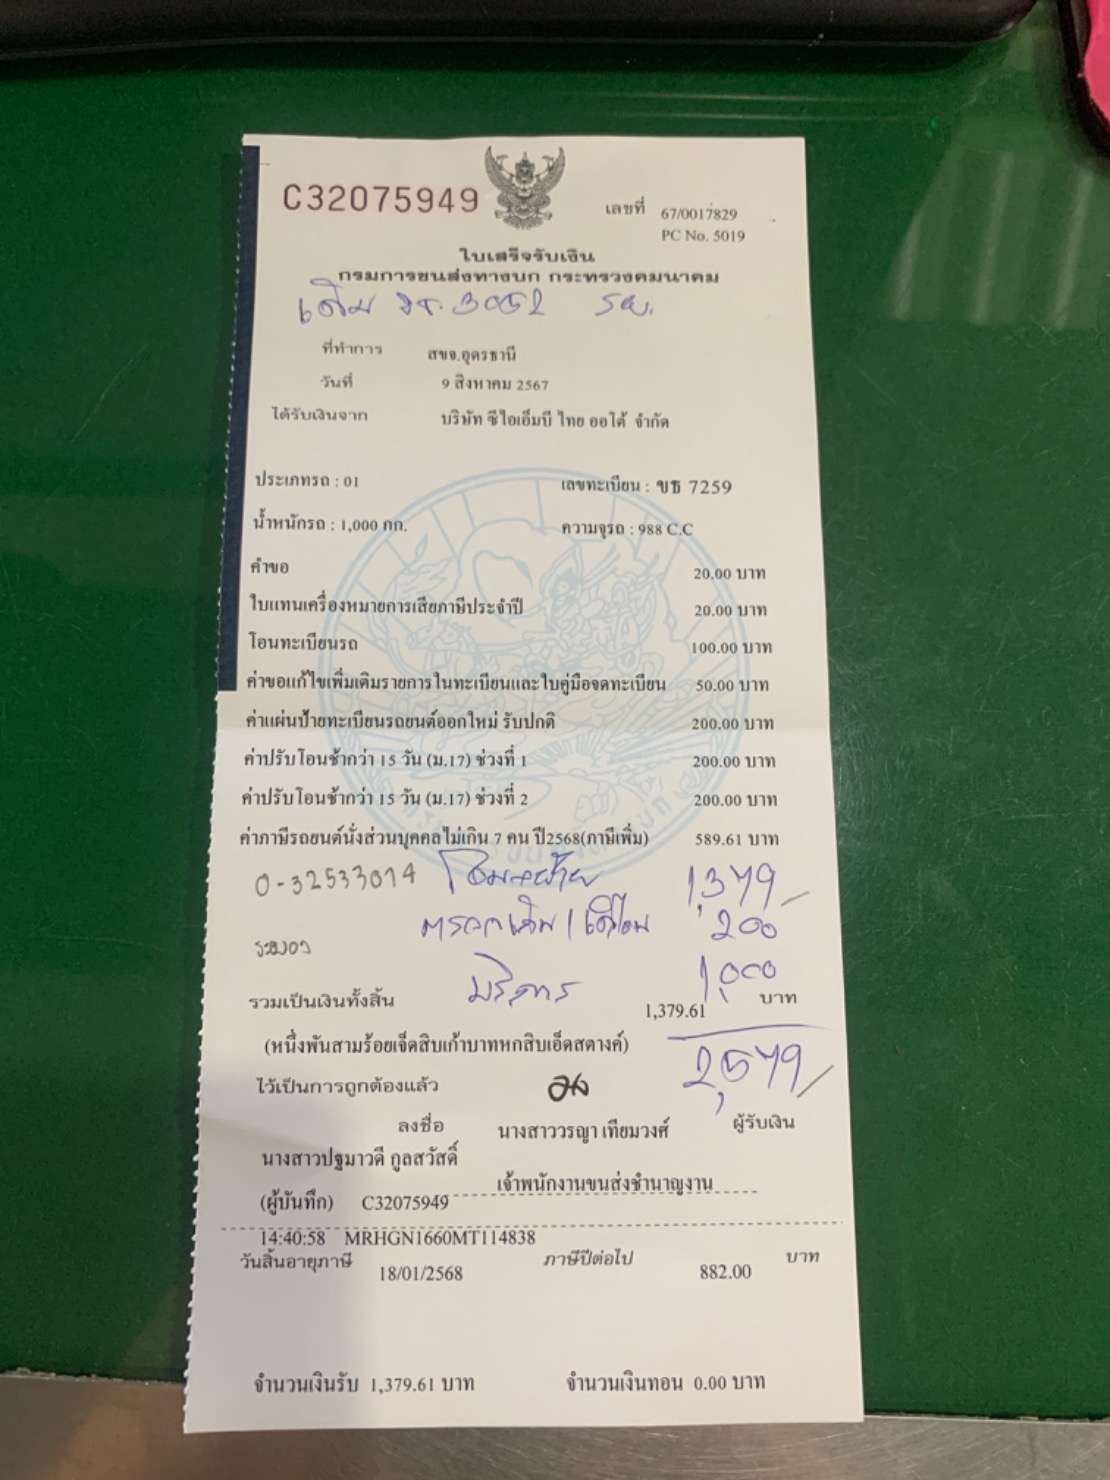 C32075949
เลขที่ 67/0017829
PC No. 5019
ใบเสร็จรับเงิน
กรมการขนส่งทางบก กระทรวงคมนาคม
เดิม ขร.3052 รย.
ที่ทำการ สขจ.อุดรธานี
วันที่ 9 สิงหาคม 2567
ได้รับเงินจาก บริษัท ซีไอเอ็มบี ไทย ออโต้ จำกัด
ประเภทรถ : 01 เลขทะเบียน : ขธ 7259
น้ำหนักรถ : 1,000 กก. ความจุรถ : 988 C.C
คำขอ 20.00 บาท
ใบแทนเครื่องหมายการเสียภาษีประจำปี 20.00 บาท
โอนทะเบียนรถ 100.00 บาท
ค่าขอแก้ไขเพิ่มเติมรายการในทะเบียนและใบคู่มือจดทะเบียน 50.00 บาท
ค่าแผ่นป้ายทะเบียนรถยนต์ออกใหม่ รับปกติ 200.00 บาท
ค่าปรับโอนช้ากว่า 15 วัน (ม.17) ช่วงที่ 1 200.00 บาท
ค่าปรับโอนช้ากว่า 15 วัน (ม.17) ช่วงที่ 2 200.00 บาท
ค่าภาษีรถยนต์นั่งส่วนบุคคลไม่เกิน 7 คน ปี2568(ภาษีเพิ่ม) 589.61 บาท
0-32533014 1,379
200
ระยอง
บริการ 1,000
รวมเป็นเงินทั้งสิ้น 1,379.61 บาท
(หนึ่งพันสามร้อยเจ็ดสิบเก้าบาทหกสิบเอ็ดสตางค์)
2,579
ไว้เป็นการถูกต้องแล้ว
ลงชื่อ นางสาววรญา เทียมวงศ์ ผู้รับเงิน
นางสาวปฐมาวดี กูลสวัสดิ์
เจ้าพนักงานขนส่งชำนาญงาน
(ผู้บันทึก) C32075949
14:40:58 MRHGN1660MT114838
วันสิ้นอายุภาษี 18/01/2568 ภาษีปีต่อไป 882.00 บาท
จำนวนเงินรับ 1,379.61 บาท จำนวนเงินทอน 0.00 บาท